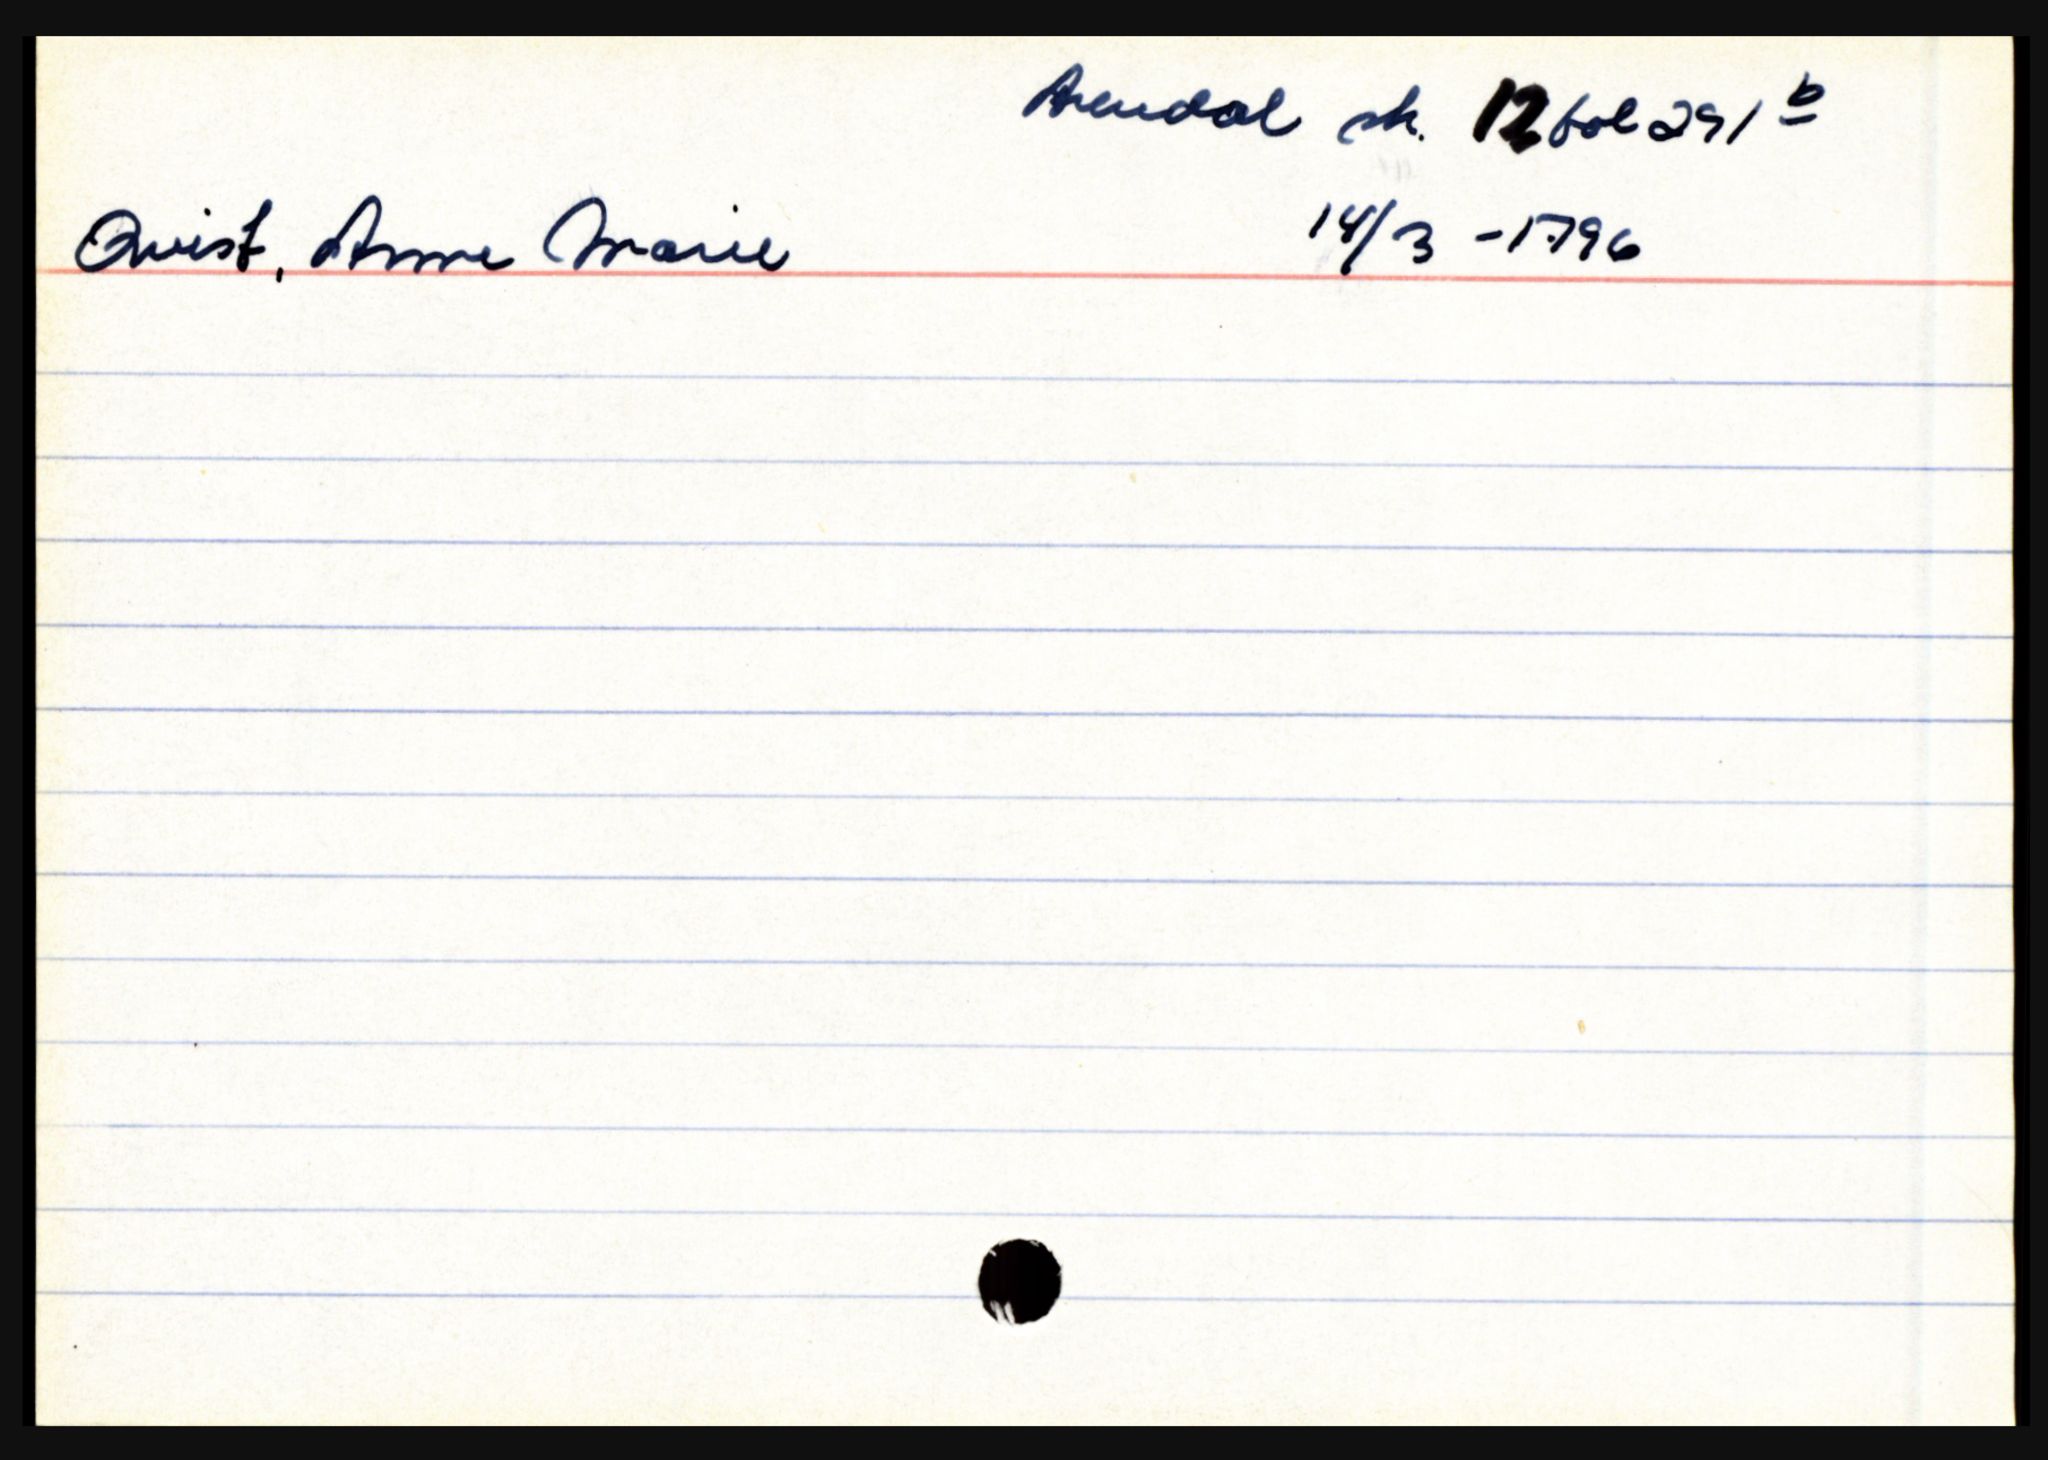 Arendal sk. 12 fol 291 b
Qvist, Anne Marie 14/3 - 1796